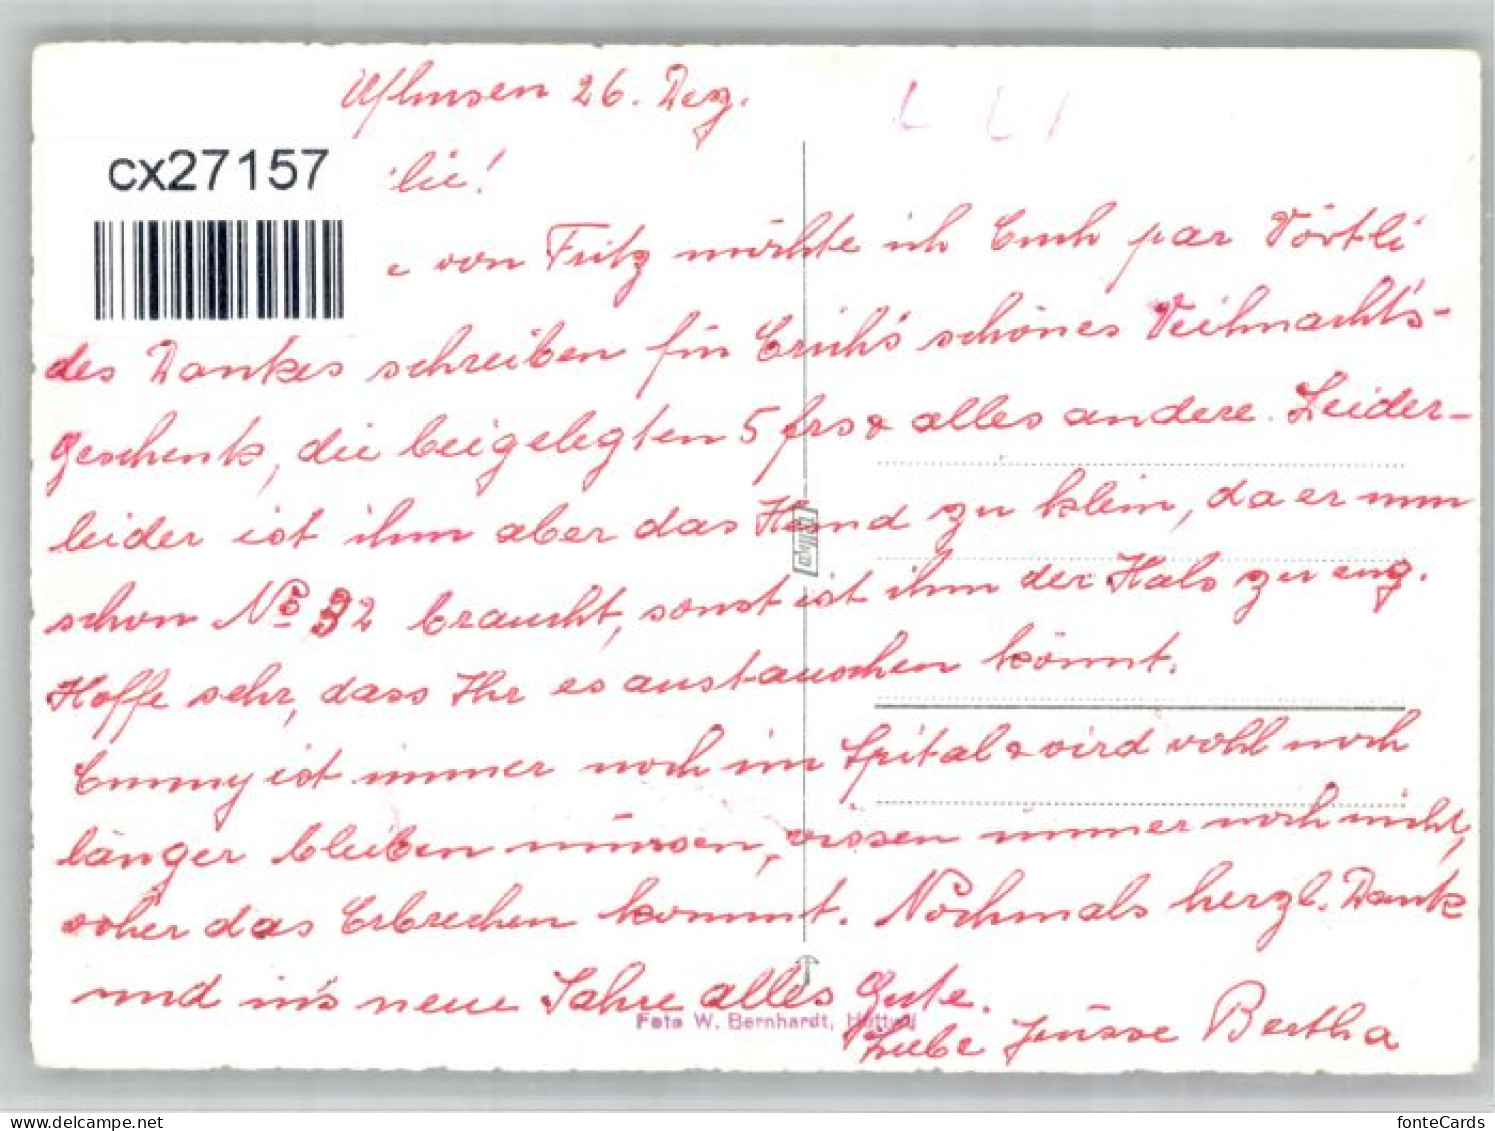 Uhlmsen 26. Dez.
cx27157
lie!
von Fritz möchte ich Euch par Wörtli
des Dankes schreiben für Erich's schönes Weihnachts-
geschenk, die beigelegten 5 frs & alles andere. Leider-
leider ist ihm aber das Hemd zu klein, da er nun
schon No 32 braucht, sonst ist ihm der Hals zu eng.
Hoffe sehr, dass Ihr es austauschen könnt.
Emmy ist immer noch im Spital & wird wohl noch
länger bleiben müssen, wissen immer noch nicht,
woher das Erbrechen kommt. Nochmals herzl. Dank
und in's neue Jahre alles Gute.
Foto W. Bernhardt, Huttwil
Liebe Grüsse Bertha
delcampe.net
fonteCards